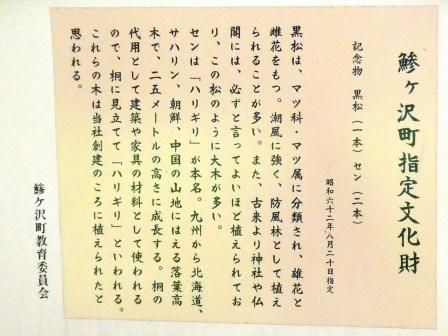 鰺ヶ沢町指定文化財
記念物　黒松（一本）セン（二本）
昭和六十二年八月二十日指定
黒松は、マツ科・マツ属に分類され、雄花と
雌花をもつ。潮風に強く、防風林として植え
られることが多い。また、古来より神社や仏
閣には、必ずと言ってよいほど植えられてお
り、この松のように大木が多い。
センは「ハリギリ」が本名。九州から北海道、
サハリン、朝鮮、中国の山地にはえる落葉高
木で、二五メートルの高さに成長する。桐の
代用として建築や家具の材料として使われる
ので、桐に見立てて「ハリギリ」といわれる。
これらの木は当社創建のころに植えられたと
思われる。
鰺ヶ沢町教育委員会